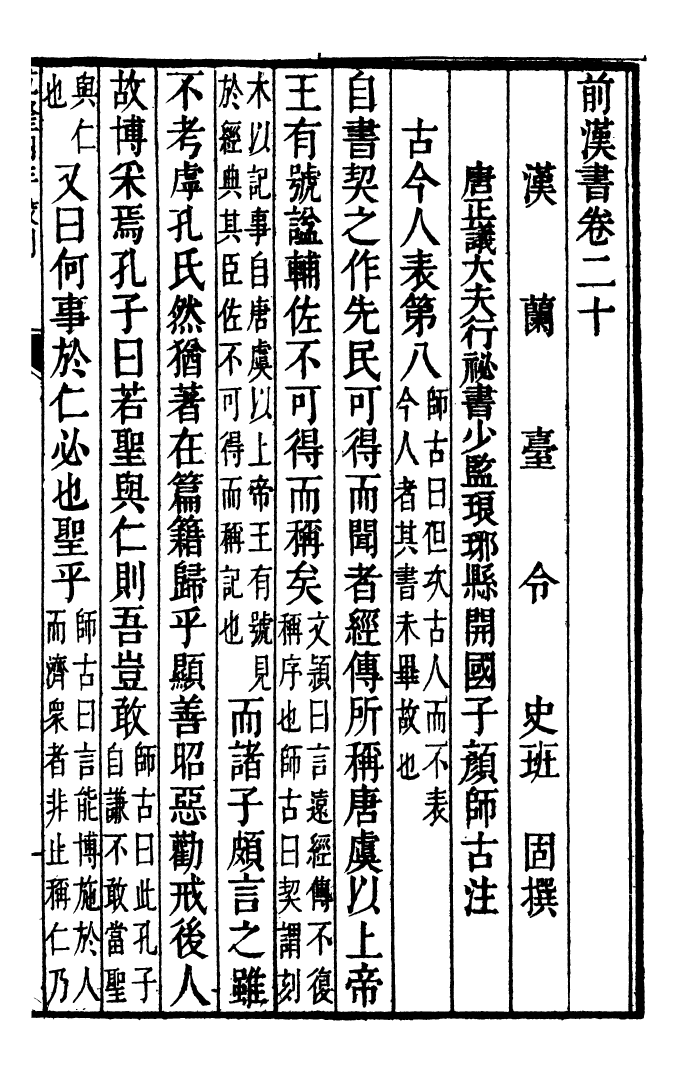 前漢書卷二十
漢蘭臺令史班固撰
唐正議大夫行祕書少監琅琊縣開國子顏師古注
古今人表第八師古曰但次古人而不表今人者其書未畢故也
自書契之作先民可得而聞者經傳所稱唐虞以上帝
王有號諡輔佐不可得而稱矣文穎曰言遠經傳不復稱序也師古曰契謂刻
木以記事自唐虞以上帝王有號見於經典其臣佐不可得而稱記也而諸子頗言之雖
不考虖孔氏然猶著在篇籍歸乎顯善昭惡勸戒後人
故博采焉孔子曰若聖與仁則吾豈敢師古曰此孔子自謙不敢當聖
與仁也又曰何事於仁必也聖乎師古曰言能博施於人而濟衆者非止稱仁乃